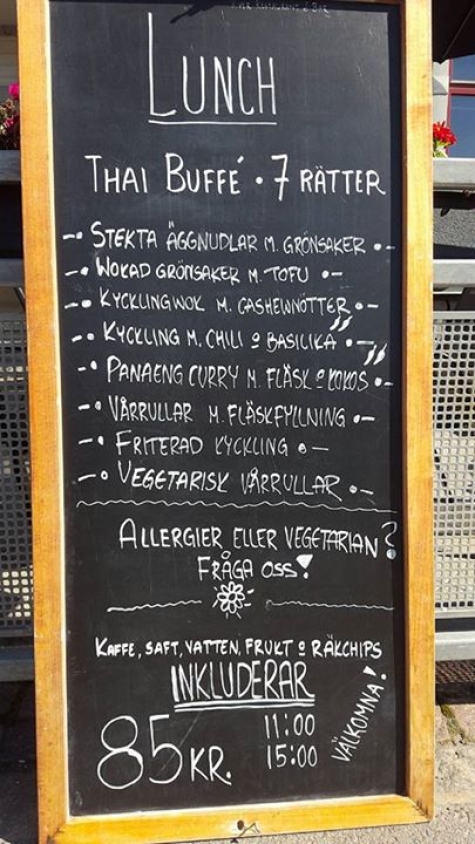 LUNCH
THAI BUFFÉ • 7 RÄTTER
STEKTA ÄGGNUDLAR M. GRÖNSAKER
WOKAD GRÖNSAKER M. TOFU
KYCKLINGWOK M. CASHEWNÖTTER
KYCKLING M. CHILI O BASILIKA
PANAENG CURRY M. FLÄSK O KOKOS
VÅRRULLAR M. FLÄSKFYLLNING
FRITERAD KYCKLING
VEGETARISK VÅRRULLAR
ALLERGIER ELLER VEGETARIAN?
FRÅGA OSS!
KAFFE, SAFT, VATTEN, FRUKT O RÄKCHIPS
INKLUDERAR
85 KR.
11:00
15:00
VÄLKOMNA!